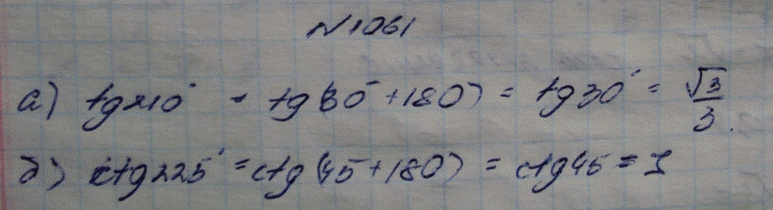 №1061
а) tg210° = tg(30°+180) = tg30° = √3/3.
б) ctg225° = ctg(45+180) = ctg45 = 1